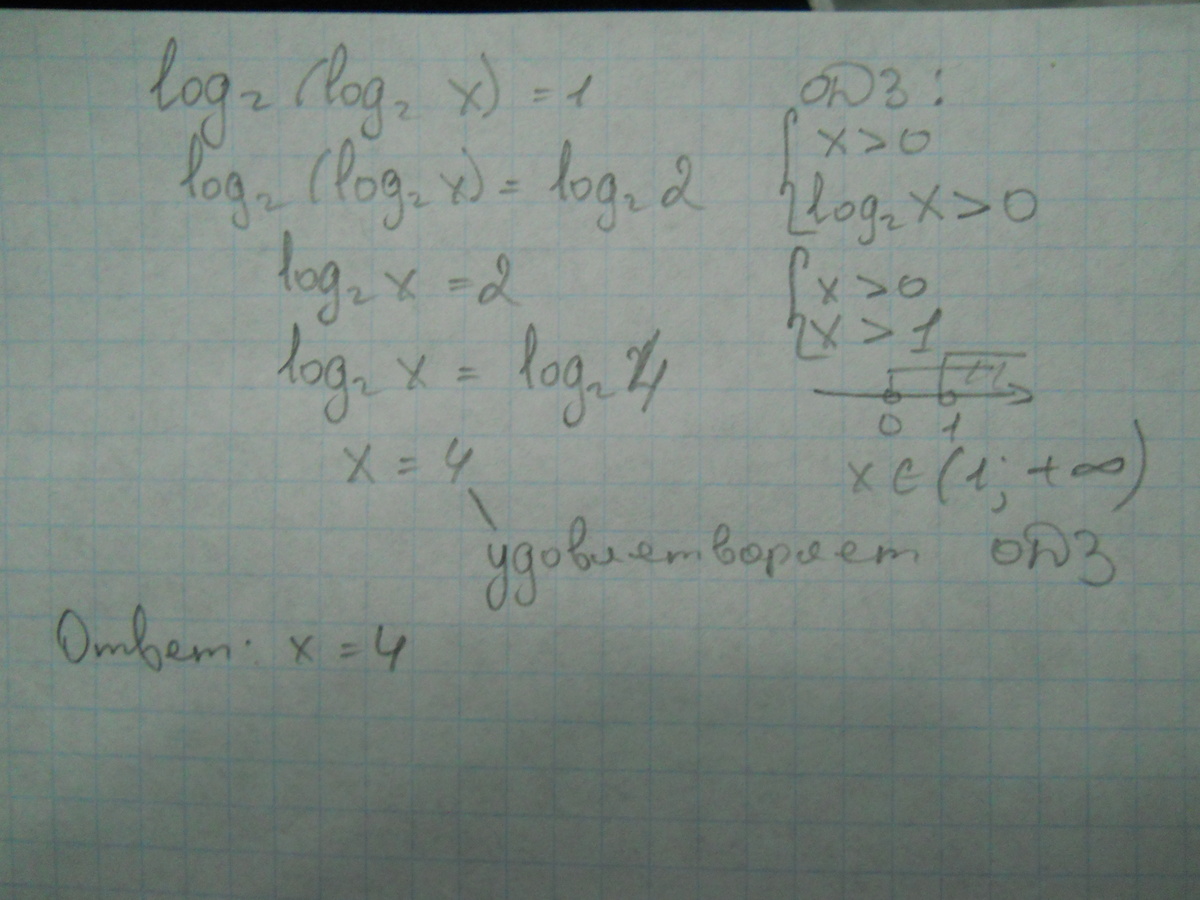 log₂ (log₂ x) = 1
log₂ (log₂ x) = log₂ 2
log₂ x = 2
log₂ x = log₂ 4
x = 4
удовлетворяет ОДЗ
ОДЗ:
{ x > 0
log₂ x > 0
{ x > 0
x > 1
0 1
x ∈ (1; +∞)
Ответ: x = 4